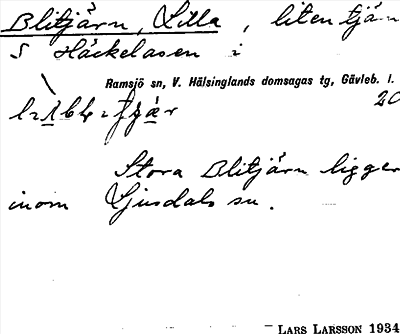 Blitjärn, Lilla, liten tjärn
S Häckelasen i
Ramsjö sn, V. Hälsinglands domsagas tg, Gävleb. l.
20
Stora Blitjärn ligger
inom Ljusdals sn.
LARS LARSSON 1934